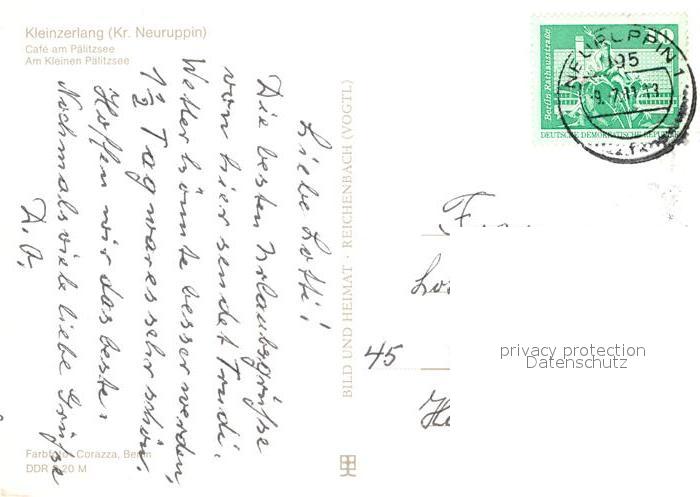 Kleinzerlang (Kr. Neuruppin)
Café am Pälitzsee
Am Kleinen Pälitzsee
Liebe Lotti!
Die besten Urlaubsgrüße
von hier sendet Trudi.
Wetter könnte besser werden,
1½ Tag war es sehr schön.
Hoffen wir das beste.
Nochmals viele liebe Grüße
D.O.
BILD UND HEIMAT · REICHENBACH (VOGTL)
Berlin Rathausstraße
10
DEUTSCHE DEMOKRATISCHE REPUBLIK
NEURUPPIN 1
195
45
privacy protection
Datenschutz
Farbfoto: Corazza, Berlin
DDR 0,20 M